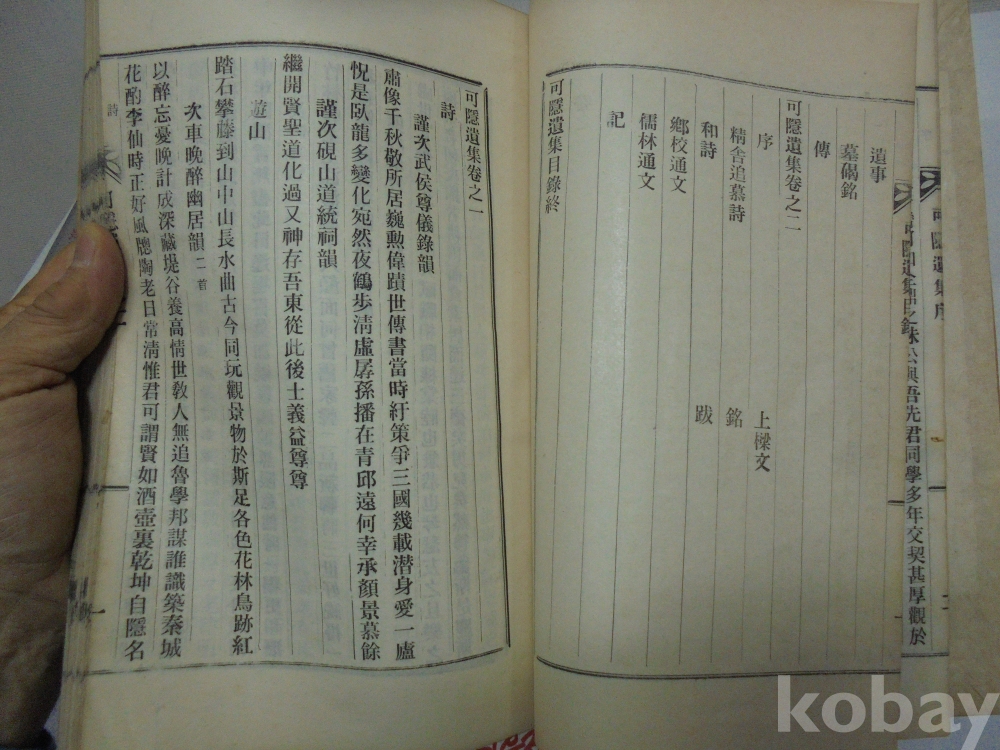 可隱遺集序
公與吾先君同學多年交契甚厚觀於
遺事
墓碣銘
傳
可隱遺集卷之二
序
上樑文
精舍追慕詩
銘
和詩
跋
鄕校通文
儒林通文
記
可隱遺集目錄終
可隱遺集卷之一
詩
謹次武侯尊儀錄韻
肅像千秋敬所居巍勳偉蹟世傳書當時紆策爭三國幾載潛身愛一廬
怳是臥龍多變化宛然夜鶴步淸虛孱孫播在青邱遠何幸承顏景慕餘
謹次硯山道統祠韻
繼開賢聖道化過又神存吾東從此後士義益尊尊
遊山
踏石攀藤到山中山長水曲古今同玩觀景物於斯足各色花林鳥跡紅
次車晚醉幽居韻 二首
以醉忘憂晚計成深藏堤谷養高情世敎人無追魯學邦謀誰識築秦城
花酌李仙時正好風牕陶老日常淸惟君可謂賢如酒壺裏乾坤自隱名
詩
kobay